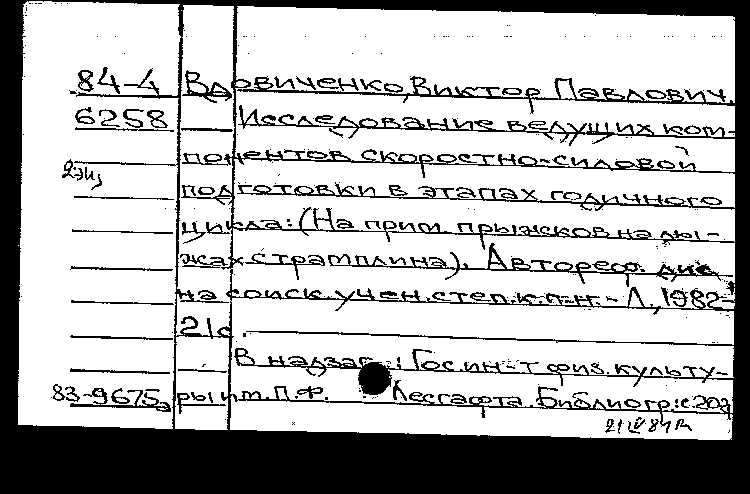 84-4 Вдовиченко, Виктор Павлович.
6258 Исследование ведущих ком-
понентов скоростно-силовой
2 экз
подготовки в этапах годичного
цикла: (На прим. прыжков на лы-
жах с трамплина). Автореф. дис
на соиск. учен. степ. к.п.н. - Л., 1982-
21с.
В надзаг.: Гос. ин-т физ. культу-
83-9675э ры им. П.Ф. Лесгафта. Библиогр.: с 20
21 IV 84